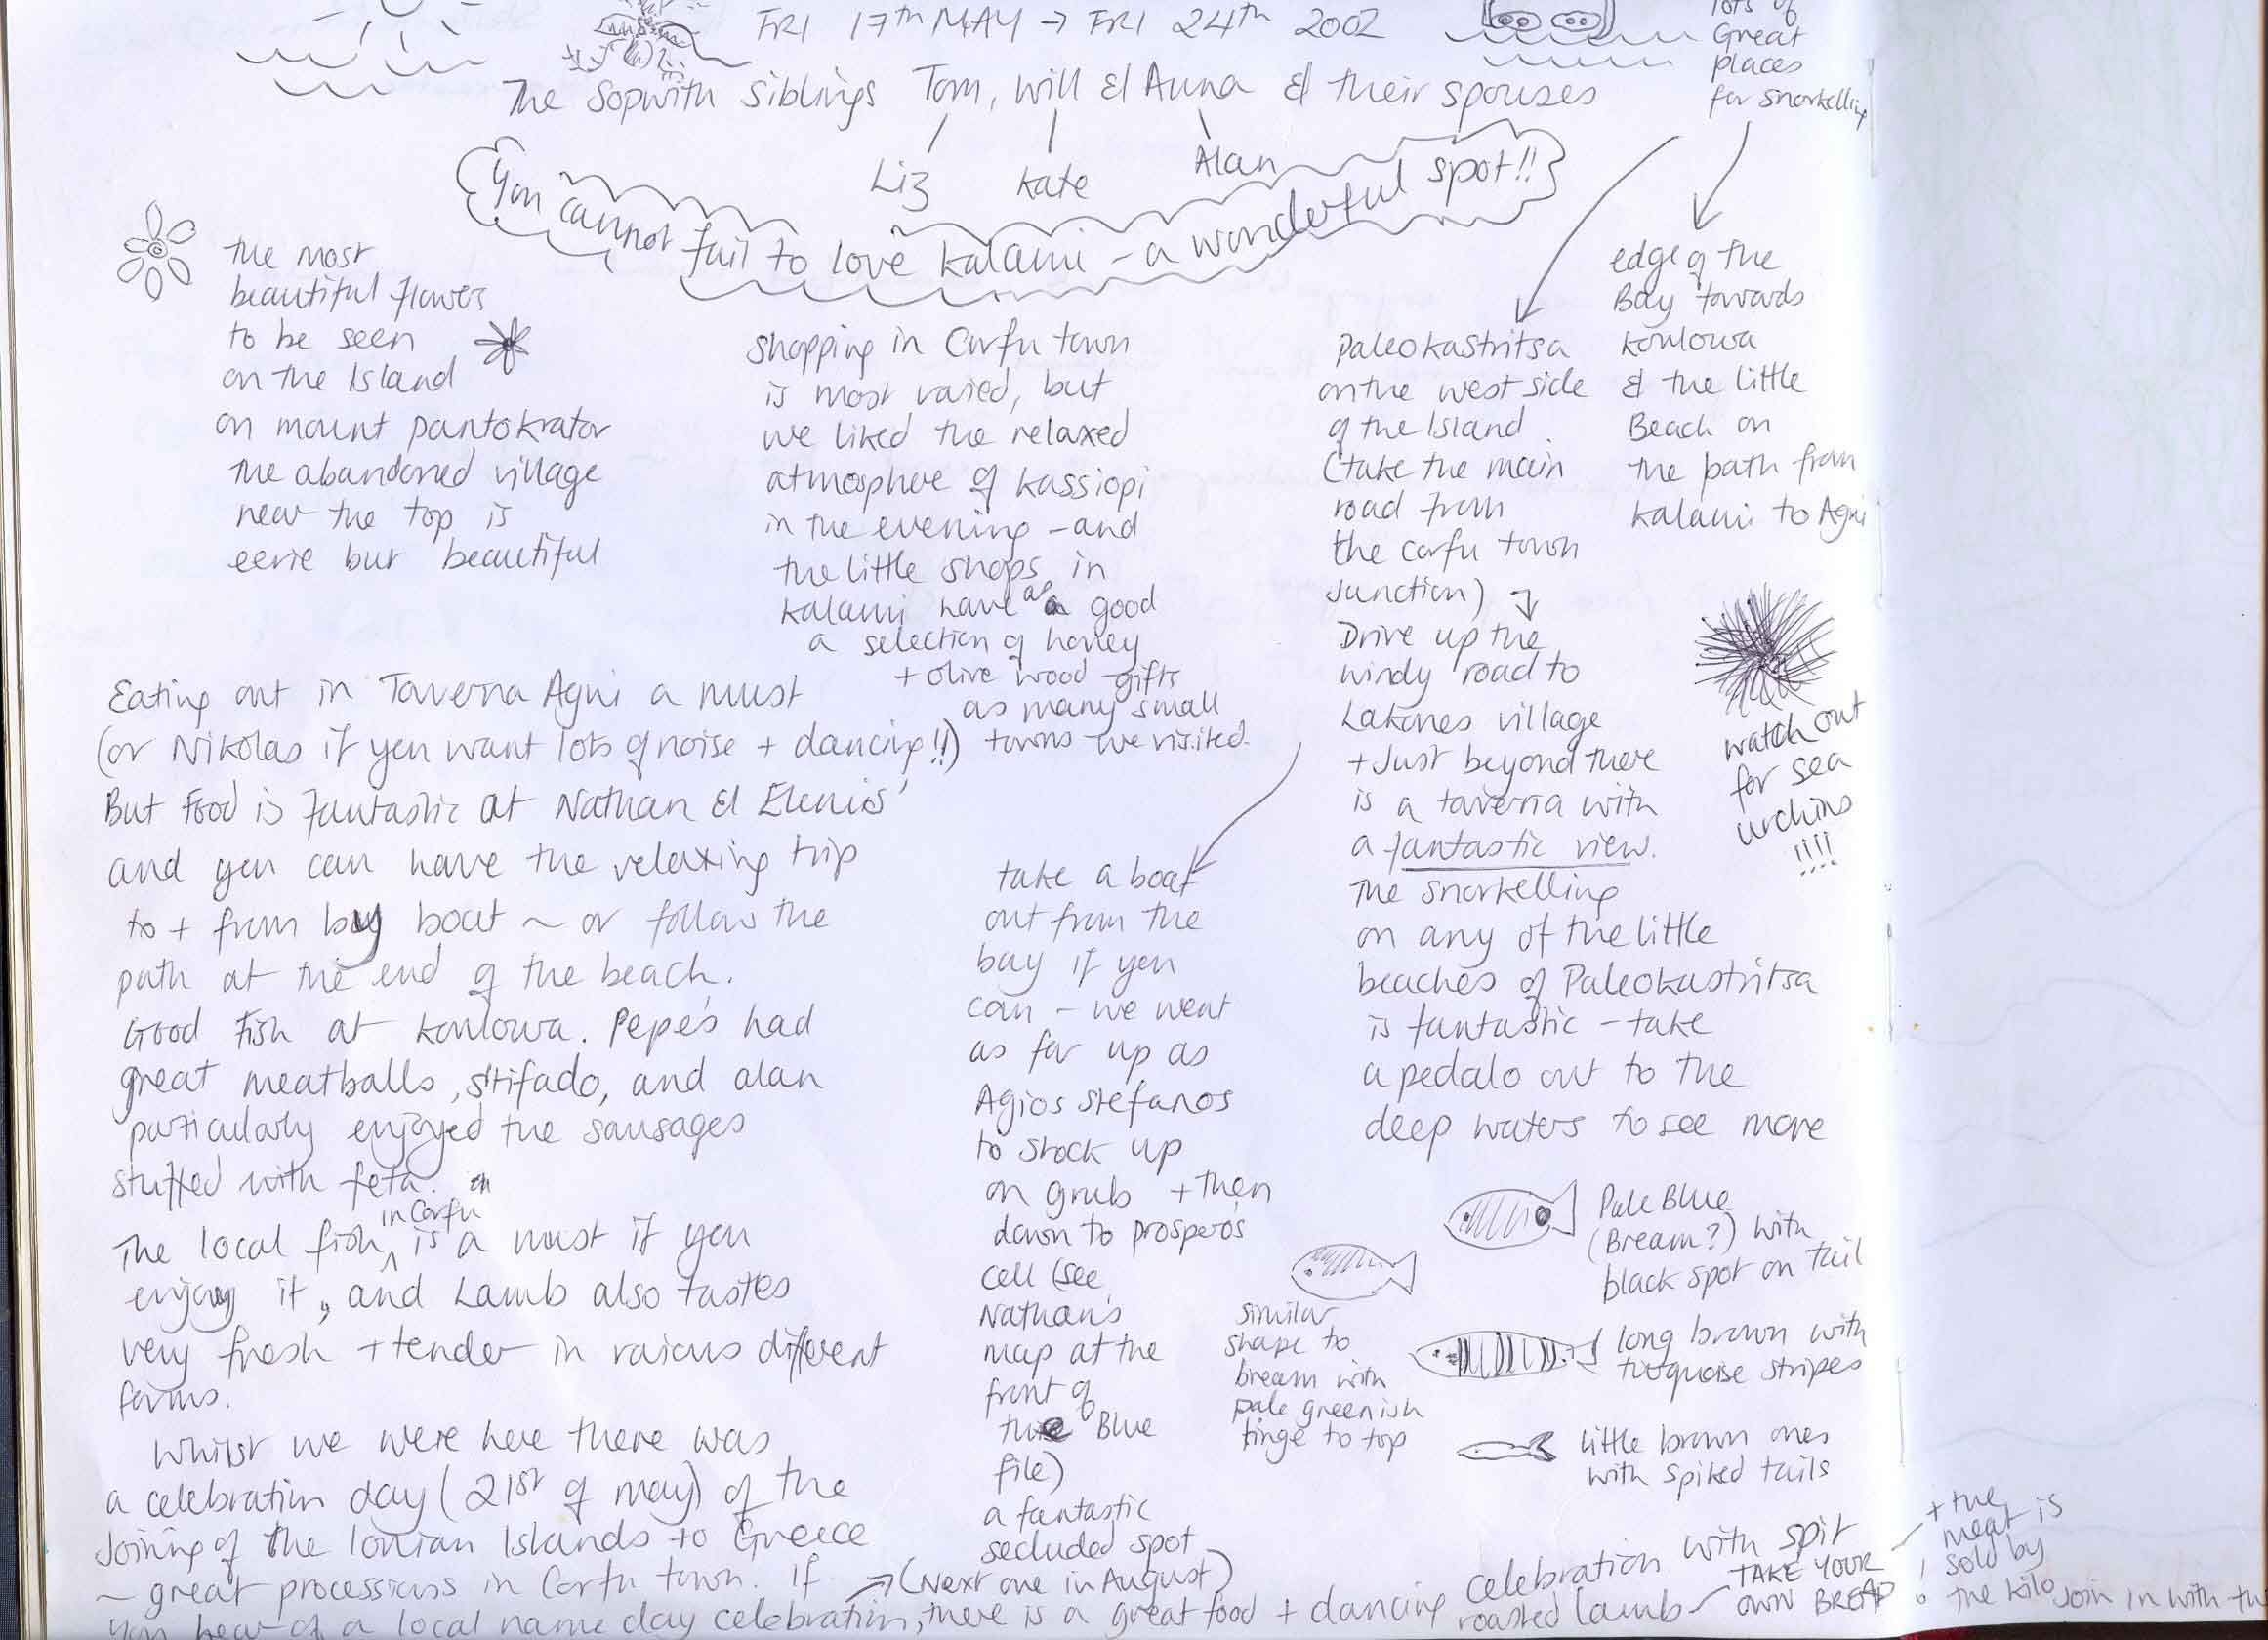 FRI 17th MAY → FRI 24th 2002
The Sopwith Siblings Tom, Will & Anna & their spouses
Liz Kate Alan
You cannot fail to love Kalami - a wonderful spot!!
lots of
Great
places
for snorkelling
the most
beautiful flowers
to be seen
on the Island
on mount pantokrator
the abandoned village
near the top is
eerie but beautiful
shopping in Corfu town
is most varied, but
we liked the relaxed
atmosphere of Kassiopi
in the evening - and
the little shops in
Kalami have as good
a selection of honey
+ olive wood gifts
as many small
towns we visited.
Paleokastritsa
on the west side
of the Island.
(take the main
road from
the Corfu town
Junction) →
Drive up the
windy road to
Lakones village
+ Just beyond there
is a taverna with
a fantastic view.
The snorkelling
on any of the little
beaches of Paleokastritsa
is fantastic - take
a pedalo out to the
deep waters to see more
edge of the
Bay towards
Koulowa
& the little
Beach on
the path from
Kalami to Agni
watch out
for sea
urchins
!!!!
Eating out in Taverna Agni a must
(or Nikolas if you want lots of noise + dancing!!)
But Food is fantastic at Nathan & Elenis'
and you can have the relaxing trip
to + from by boat ~ or follow the
path at the end of the beach.
Good Fish at Koulowa. Pepe's had
great meatballs, stifado, and alan
particularly enjoyed the sausages
stuffed with feta.
The local fish in Corfu is a must if you
enjoy it, and Lamb also tastes
very fresh + tender in raious different
forms.
Whilst we were here there was
a celebration day (21st of may) of the
Joining of the Ionian Islands to Greece
~ great processions in Corfu town. If
you hear of a local name day celebration, there is a great food + dancing celebration with spit
roasted lamb
(Next one in August)
TAKE YOUR
OWN BREAD
+ the
meat is
sold by
the kilo
Join in with
take a boat
out from the
bay if you
can - we went
as far up as
Agios Stefanos
to stock up
on grub + then
down to prospero's
cell (see
Nathan's
map at the
front of
the Blue
file)
a fantastic
secluded spot
Pale Blue
(Bream?) with
black spot on tail
similar
shape to
bream with
pale greenish
tinge to top
long brown with
turquoise stripes
little brown ones
with spiked tails